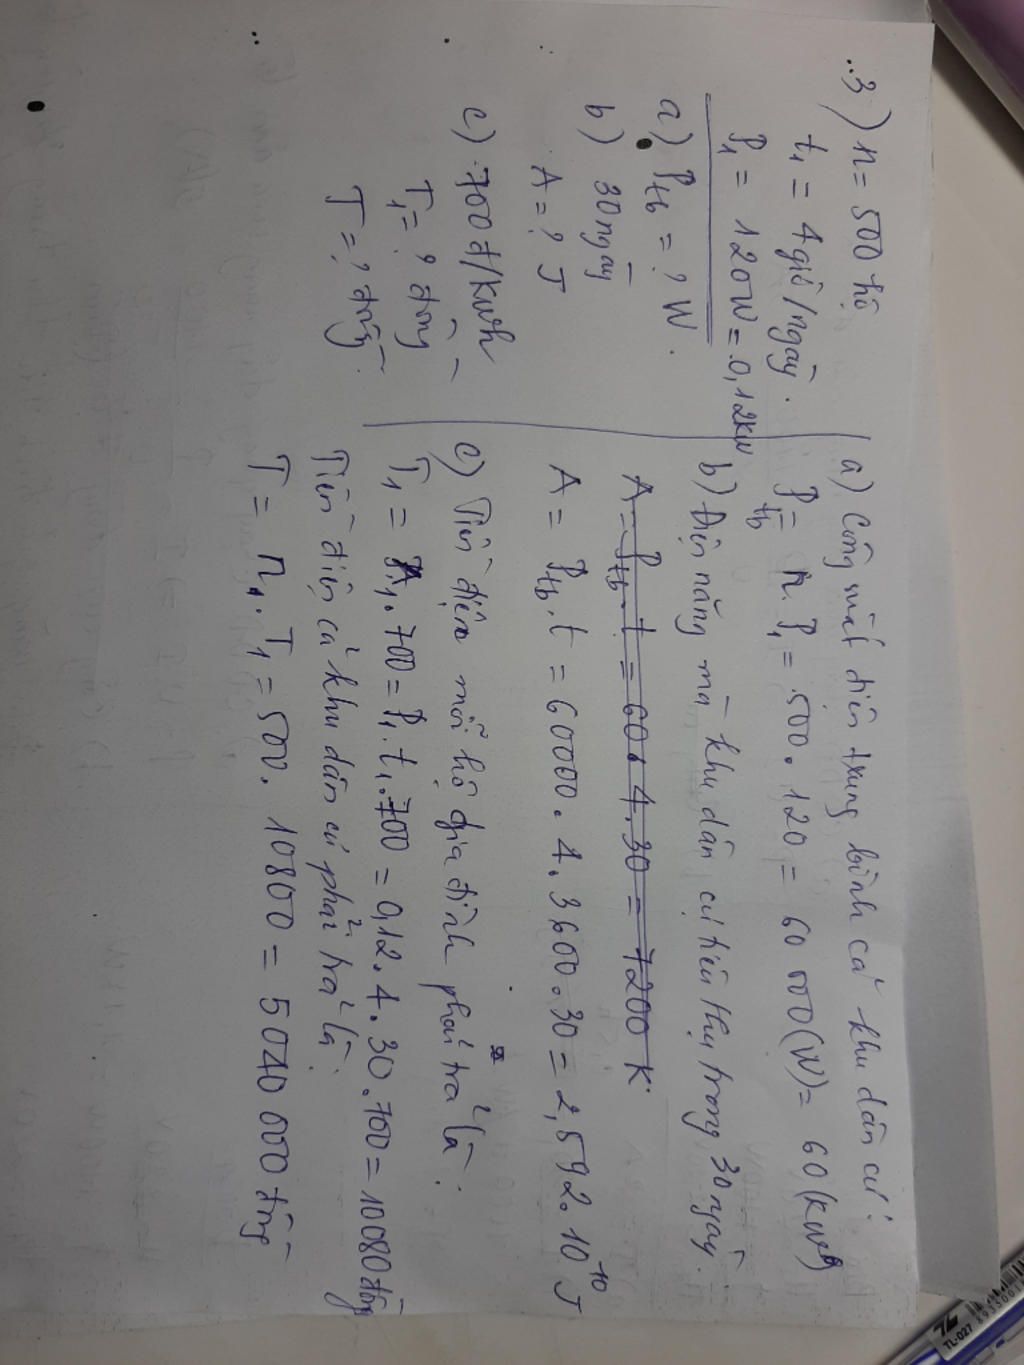 3) n = 500 hộ
t₁ = 4 giờ/ngày.
P₁ = 120W = 0,12kW
a) Ptb = ? W.
b) 30 ngày
A = ? J
c) 700đ/kWh
T₁ = ? đồng
T = ? đồng
a) Công suất điện trung bình cả khu dân cư:
Ptb = n. P₁ = 500. 120 = 60 000(W) = 60(kW)
b) Điện năng mà khu dân cư tiêu thụ trong 30 ngày.
A = Ptb. t = 60. 4. 30 = 7200 K
A = Ptb. t = 60000. 4. 3600. 30 = 2,592. 10¹⁰ J
c) Tiền điện mỗi hộ gia đình phải trả là:
T₁ = A₁. 700 = P₁. t₁. 700 = 0,12. 4. 30. 700 = 10080 đồng
Tiền điện cả khu dân cư phải trả là:
T = n. T₁ = 500. 10800 = 5040 000 đồng
TL-027